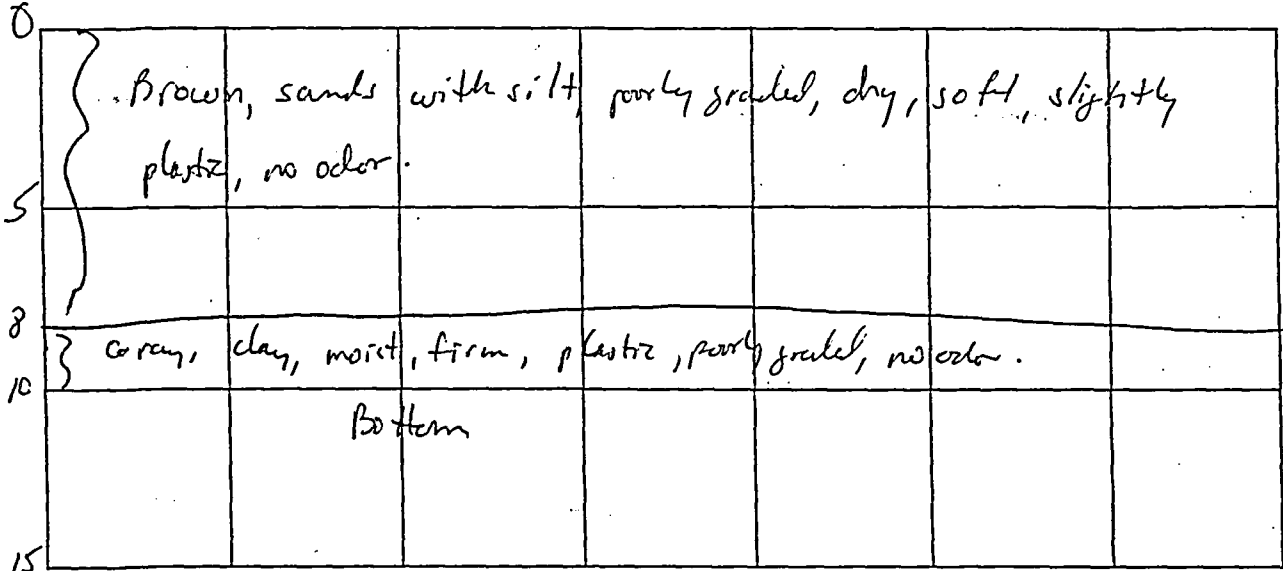 0
Brown, sands with silt, poorly graded, dry, soft, slightly
plastic, no odor.
5
8
Gray, clay, moist, firm, plastic, poorly graded, no odor.
10
Bottom
15